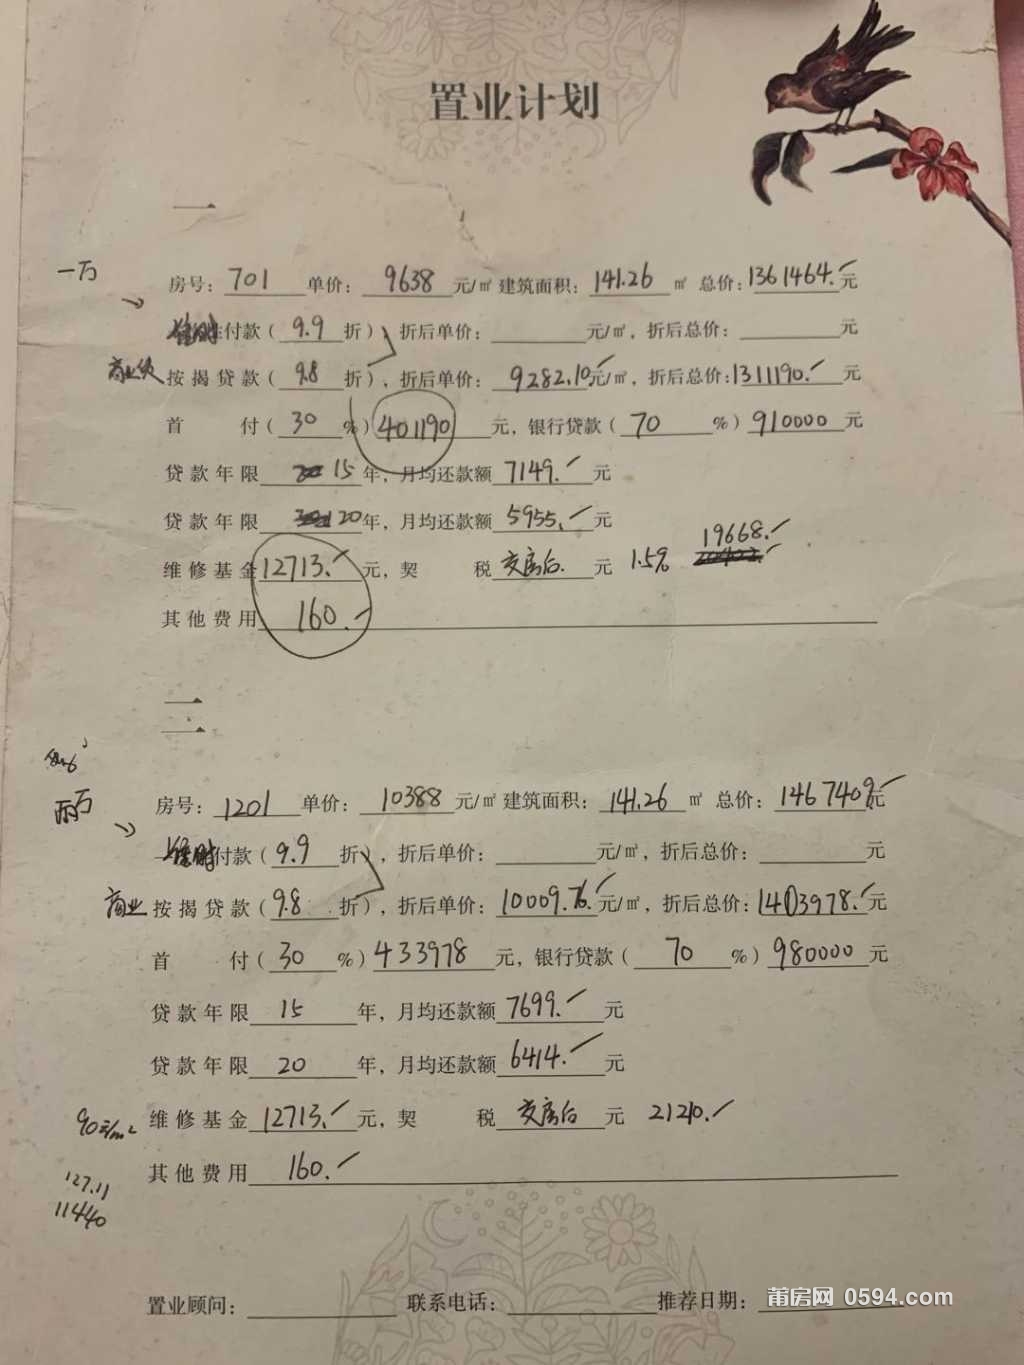 置业计划
一
一万
房号：701 单价：9638 元/㎡ 建筑面积：141.26 ㎡ 总价：1361464.元
付款（9.9折），折后单价：元/㎡，折后总价：元
商业贷 按揭贷款（9.8折），折后单价：9282.10元/㎡，折后总价：1311190.元
首付（30%）401190元，银行贷款（70%）910000元
贷款年限 15年，月均还款额7149.元
贷款年限 20年，月均还款额5955.元
19668.
维修基金12713.元，契税 交房后.元 1.5%
其他费用 160.
二
两万
房号：1201 单价：10388 元/㎡ 建筑面积：141.26 ㎡ 总价：1467409元
付款（9.9折），折后单价：元/㎡，折后总价：元
商业 按揭贷款（9.8折），折后单价：10009.76元/㎡，折后总价：1413978.元
首付（30%）433978元，银行贷款（70%）980000元
贷款年限 15年，月均还款额7699.元
贷款年限 20年，月均还款额6414.元
90元/m² 维修基金12713.元，契税 交房后元 21210.
其他费用 160.
127.11
11440
置业顾问： 联系电话： 推荐日期：
莆房网 0594.com